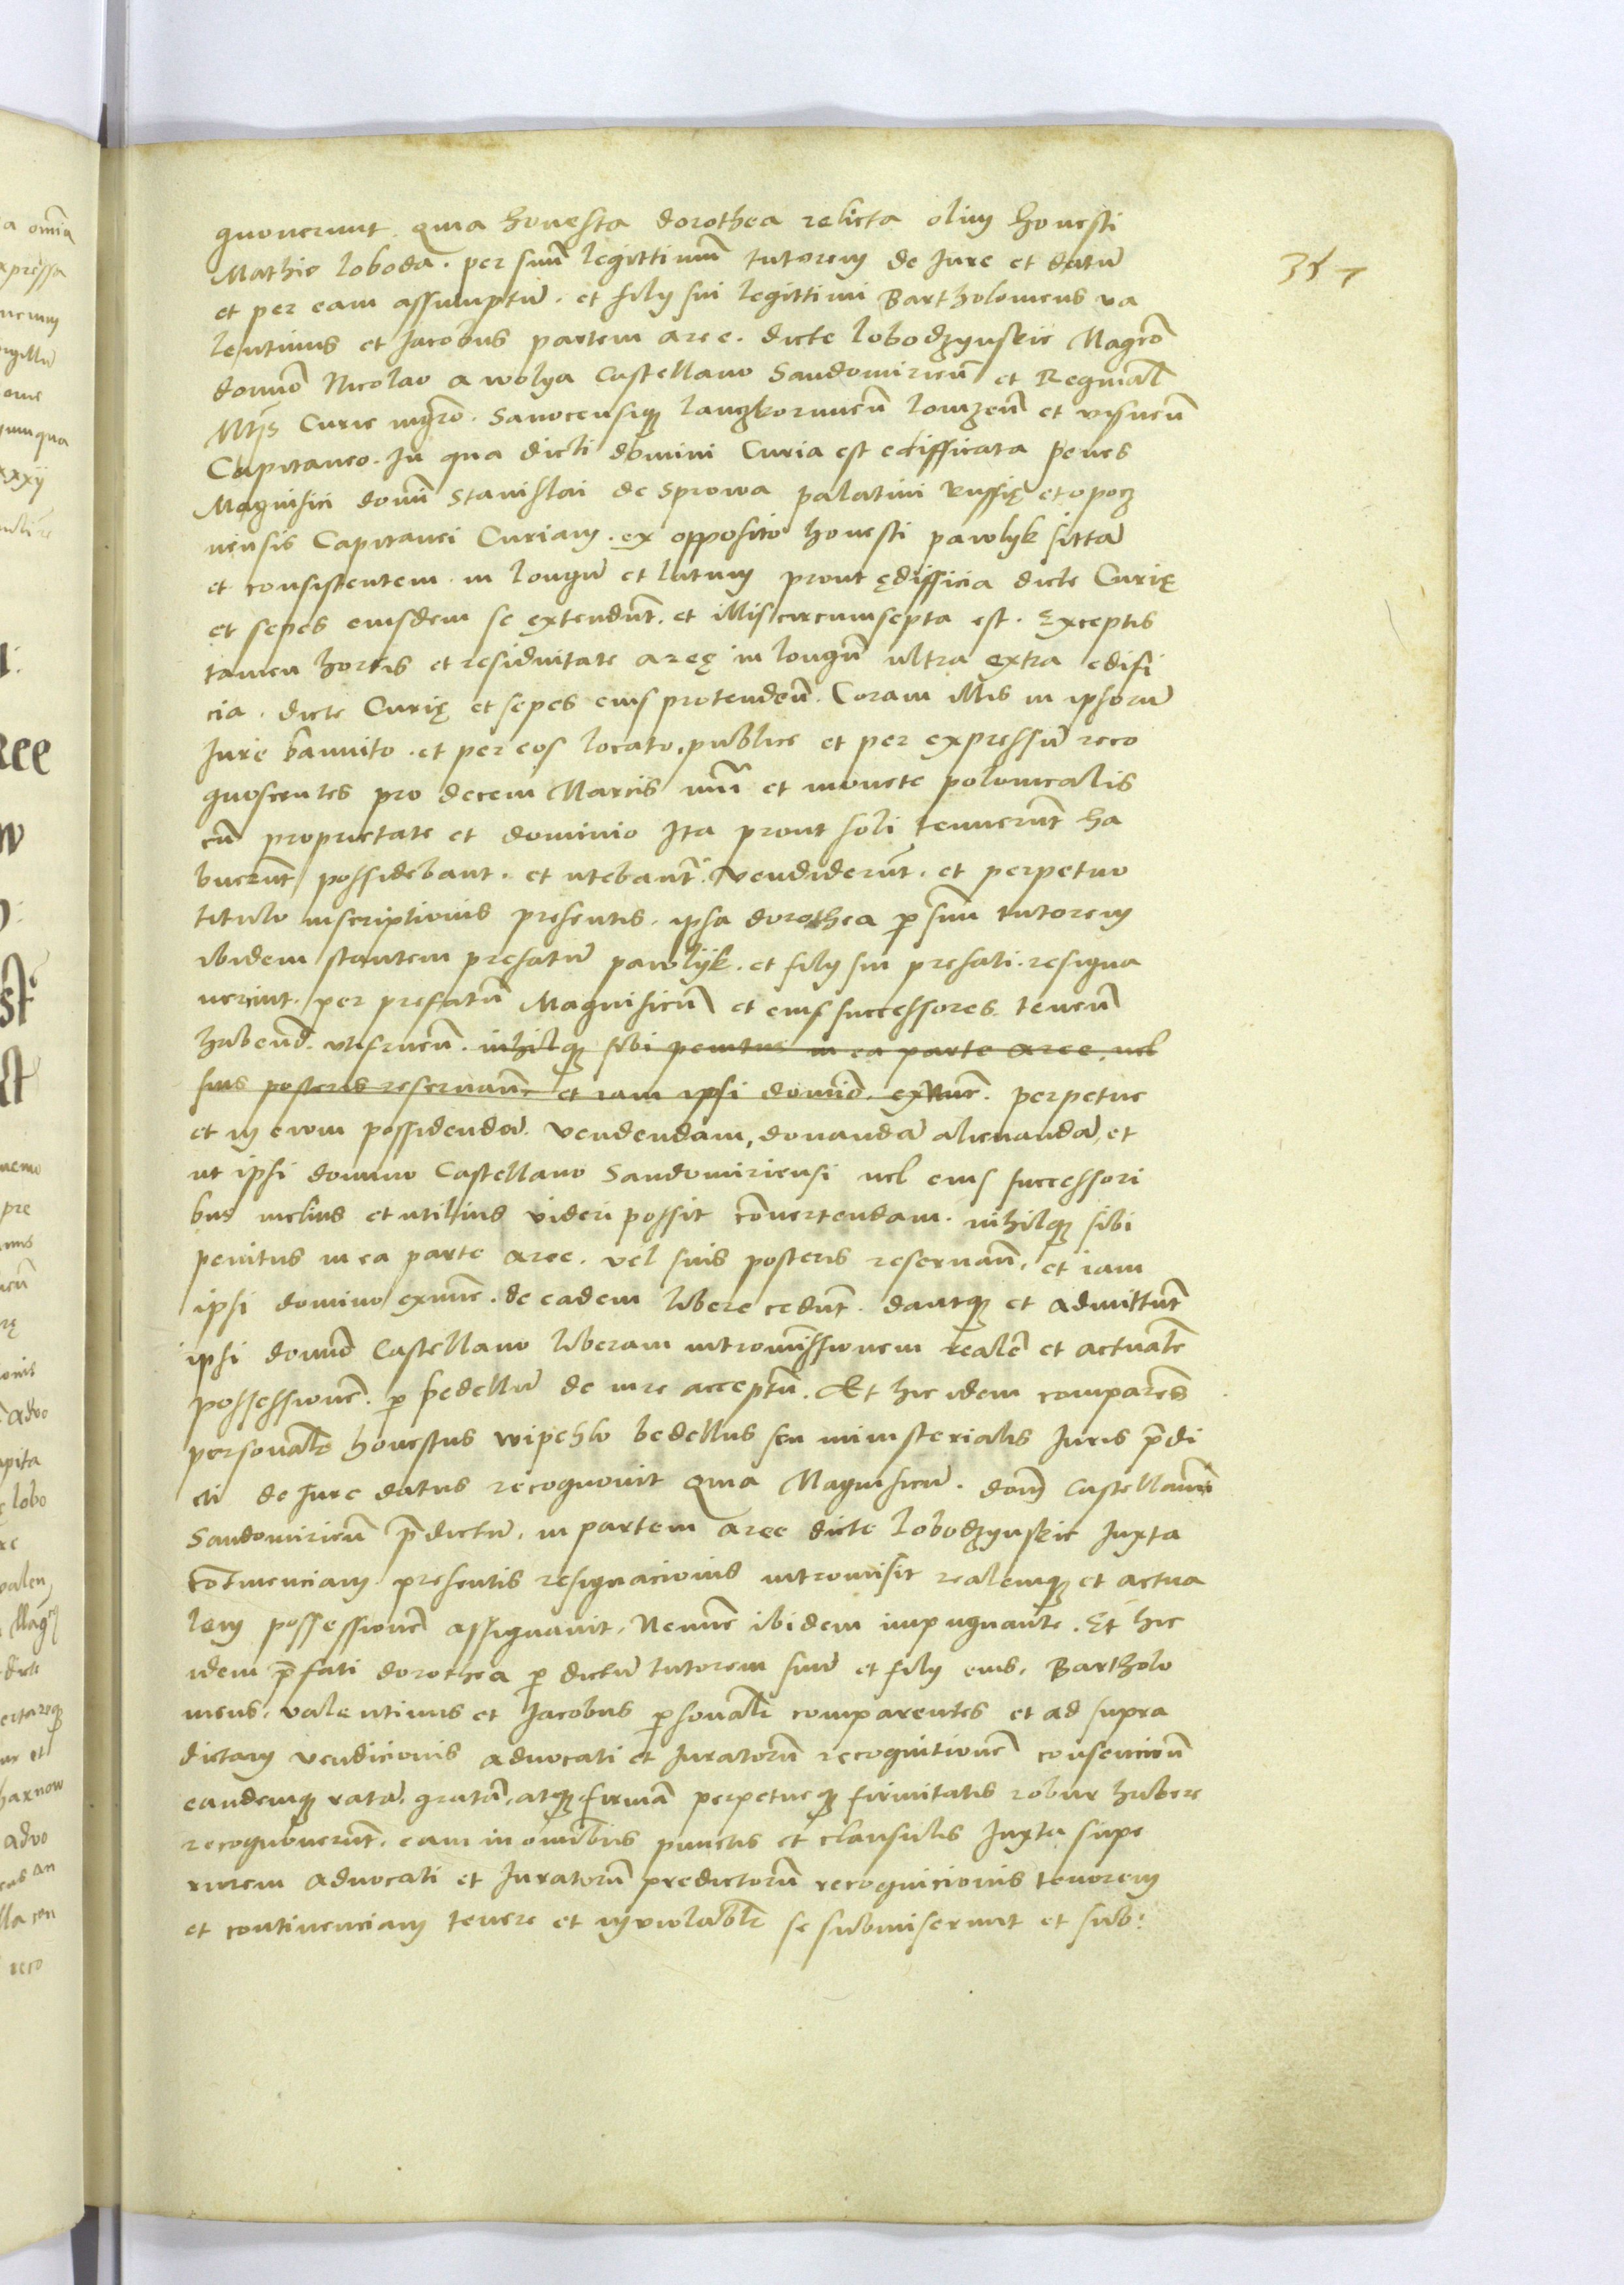 gnoverunt. Quia honesta dorothea relicta olim honesti
Mathie loboda. per suũ legittimũ tutorem de Iure et datũ
et per eam assumptũ. et filij sui legittimi Bartholomeus va
lentinus et Jacobus partem aree. dicte lobodzynskie Magcõ
domiõ Nicolao a wolya Castellano Sandomirieñ et Reginal̃
Mtĩs Curie mgrõ. Sanocensiqꝫ lanczkorunieñ lomzeñ et visneñ
Capitaneo. In qua dicti domini Curia est edifficata penes
Magnifici domĩ Stanislai de Sprowa palatini Russię et opocz
nensis Capitanei Curiam. ex opposito honesti pawlyk sittã
et consistentem. in longũ et latum prout ędifficia dicte Curię
et sepes eiusdem se extendũt. et illis circumsepta est. Exceptis
tamen hortis et residuitate areę in longũ ultra extra edifi
cia. dicte Curię et sepes eius protendeñ. Coram illis in ipsorũ
Iure bannito. et per eos locato. publice et per expressũ reco
gnoscentes pro decem Marcis nũi et monete polonicalis
cũ proprietate et dominio Ita prout soli tenuerũt ha
buerũt possidebant. et utebant̃. Vendiderũt. et perpetuo
titulo inscriptionis presentis. ipsa dorothea p̱ suũ tutorem
ibidem stantem prefatũ pawlijk. et filij sui prefati. resigna
verunt. per prefatũ Magnificũ et eius successores. teneñ
habend̃. utifrueñ. nihilqꝫ sibi penitus in ea parte aree. vel
suis posteris reservañ. et iam ipsi domiõ. exnũc. perpetue
et in evum possidendã. vendendam, donandã alienandã, et
ut ipsi domino Castellano Sandomiriensi vel eius successori
bus melius et utilius videri possit cõvertendam. nihilqꝫ sibi
penitus in ea parte aree. vel suis posteris reservañ. et iam
ipsi domino exnũc. de eadem libere cedũt. dantqꝫ et admittũt
ipsi domiõ Castellano liberam intromissionem realẽ et actualẽ
possessionẽ. p̱ bedellũ de iure acceptũ. Et hic idem comparẽs
personalr̃ honestus wipchlo bedellus seu ministerialis Iuris p̃di
cti de Iure datus recognovit Quia Magnificũ. dom̃ Castellanũ
Sandomirieñ p̃dictũ. in partem aree dicte lobodzynskie Iuxta
cõtinenciam presentis resignacionis intromisit realemqꝫ et actua
lem possessionẽ assignavit. Nemĩe ibidem impugnante. Et hic
idem p̃fati dorothea p̱ dictũ tutorem suũ et filij eius. Bartholo
meus. valentinus et Jacobus p̱sonalr̃ comparentes et ad supra
dictam vendicionis advocati et Iuratorũ recognitionẽ consencieñ
eandemqꝫ ratã. gratã. atqꝫ firmã perpetueqꝫ firmitatis robur habere
recognoverũt. eam in omĩbus punctis et clausulis Iuxta supe
riorem advocati et Iuratorũ predictorũ recognicionis tenorem
et continenciam tenere et inviolablr̃ se submiserunt et sub: